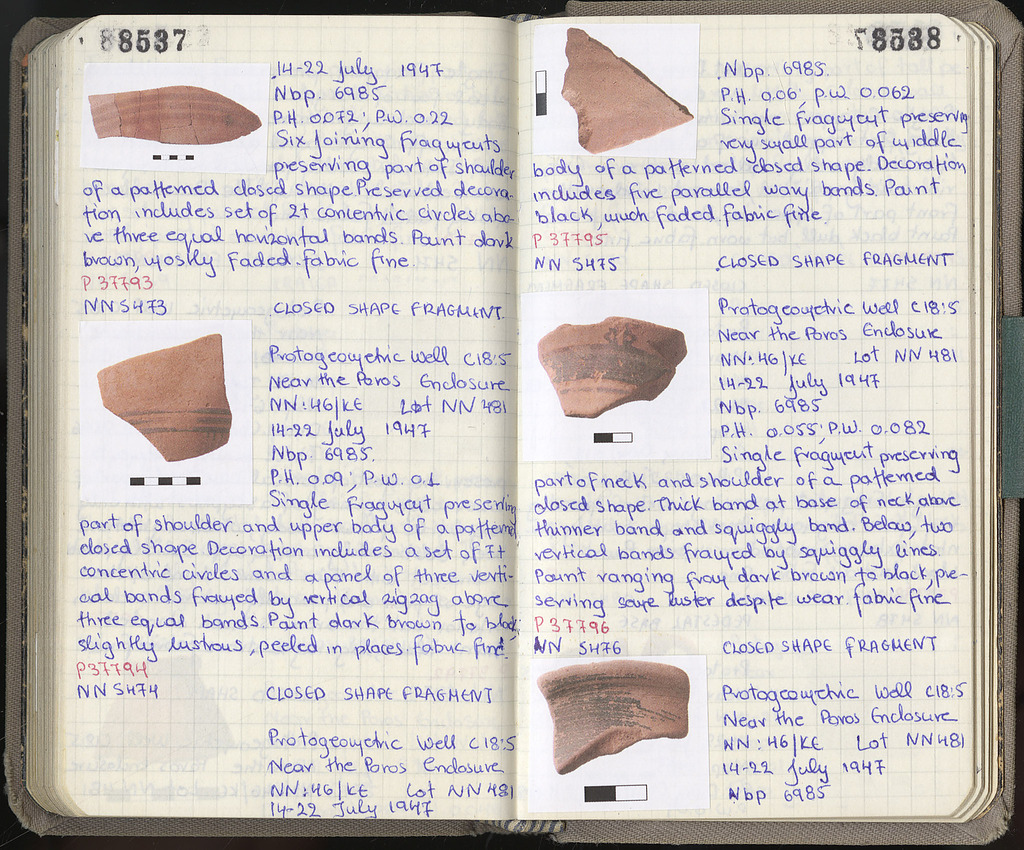 88537
14-22 July 1947
Nbp. 6985
P.H. 0.072; P.W. 0.22
Six joining fragments
preserving part of shoulder
of a patterned closed shape. Preserved decora-
tion includes set of 2+ concentric circles abo-
ve three equal horizontal bands. Paint dark
brown, mostly faded. fabric fine
P 37793
NN S473 CLOSED SHAPE FRAGMENT.
Protogeometric Well C18:5
Near the Poros Enclosure
NN:46/KE Lot NN 481
14-22 July 1947
Nbp. 6985.
P.H. 0.09; P.W. 0.1
Single fragment preserving
part of shoulder and upper body of a patterned
closed shape Decoration includes a set of 7+
concentric circles and a panel of three verti-
cal bands framed by vertical zigzag above
three equal bands. Paint dark brown to black,
slightly lustrous, peeled in places. fabric fine.
P37794
NN S474 CLOSED SHAPE FRAGMENT
Protogeometric Well C18:5
Near the Poros Enclosure
NN:46/KE Lot NN 481
14-22 July 1947
78538
Nbp. 6985.
P.H. 0.06; P.W. 0.062
Single fragment preserving
very small part of middle
body of a patterned closed shape. Decoration
includes five parallel wavy bands. Paint
black, much faded. fabric fine.
P 37795
NN S475 CLOSED SHAPE FRAGMENT
Protogeometric Well C18:5
Near the Poros Enclosure
NN:46/KE Lot NN 481
14-22 July 1947
Nbp. 6985
P.H. 0.055; P.W. 0.082
Single fragment preserving
part of neck and shoulder of a patterned
closed shape. Thick band at base of neck, above
thinner band and squiggly band. Below, two
vertical bands framed by squiggly lines.
Paint ranging from dark brown to black, pre-
serving some luster despite wear. fabric fine
P 37796
NN S476 CLOSED SHAPE FRAGMENT
Protogeometric Well C18:5
Near the Poros Enclosure
NN:46/KE Lot NN481
14-22 July 1947
Nbp 6985